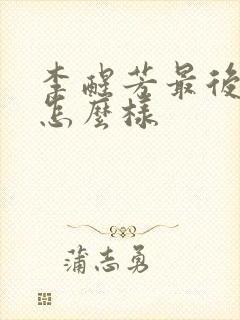 李醒芳最後
怎麼樣
蒲志勇